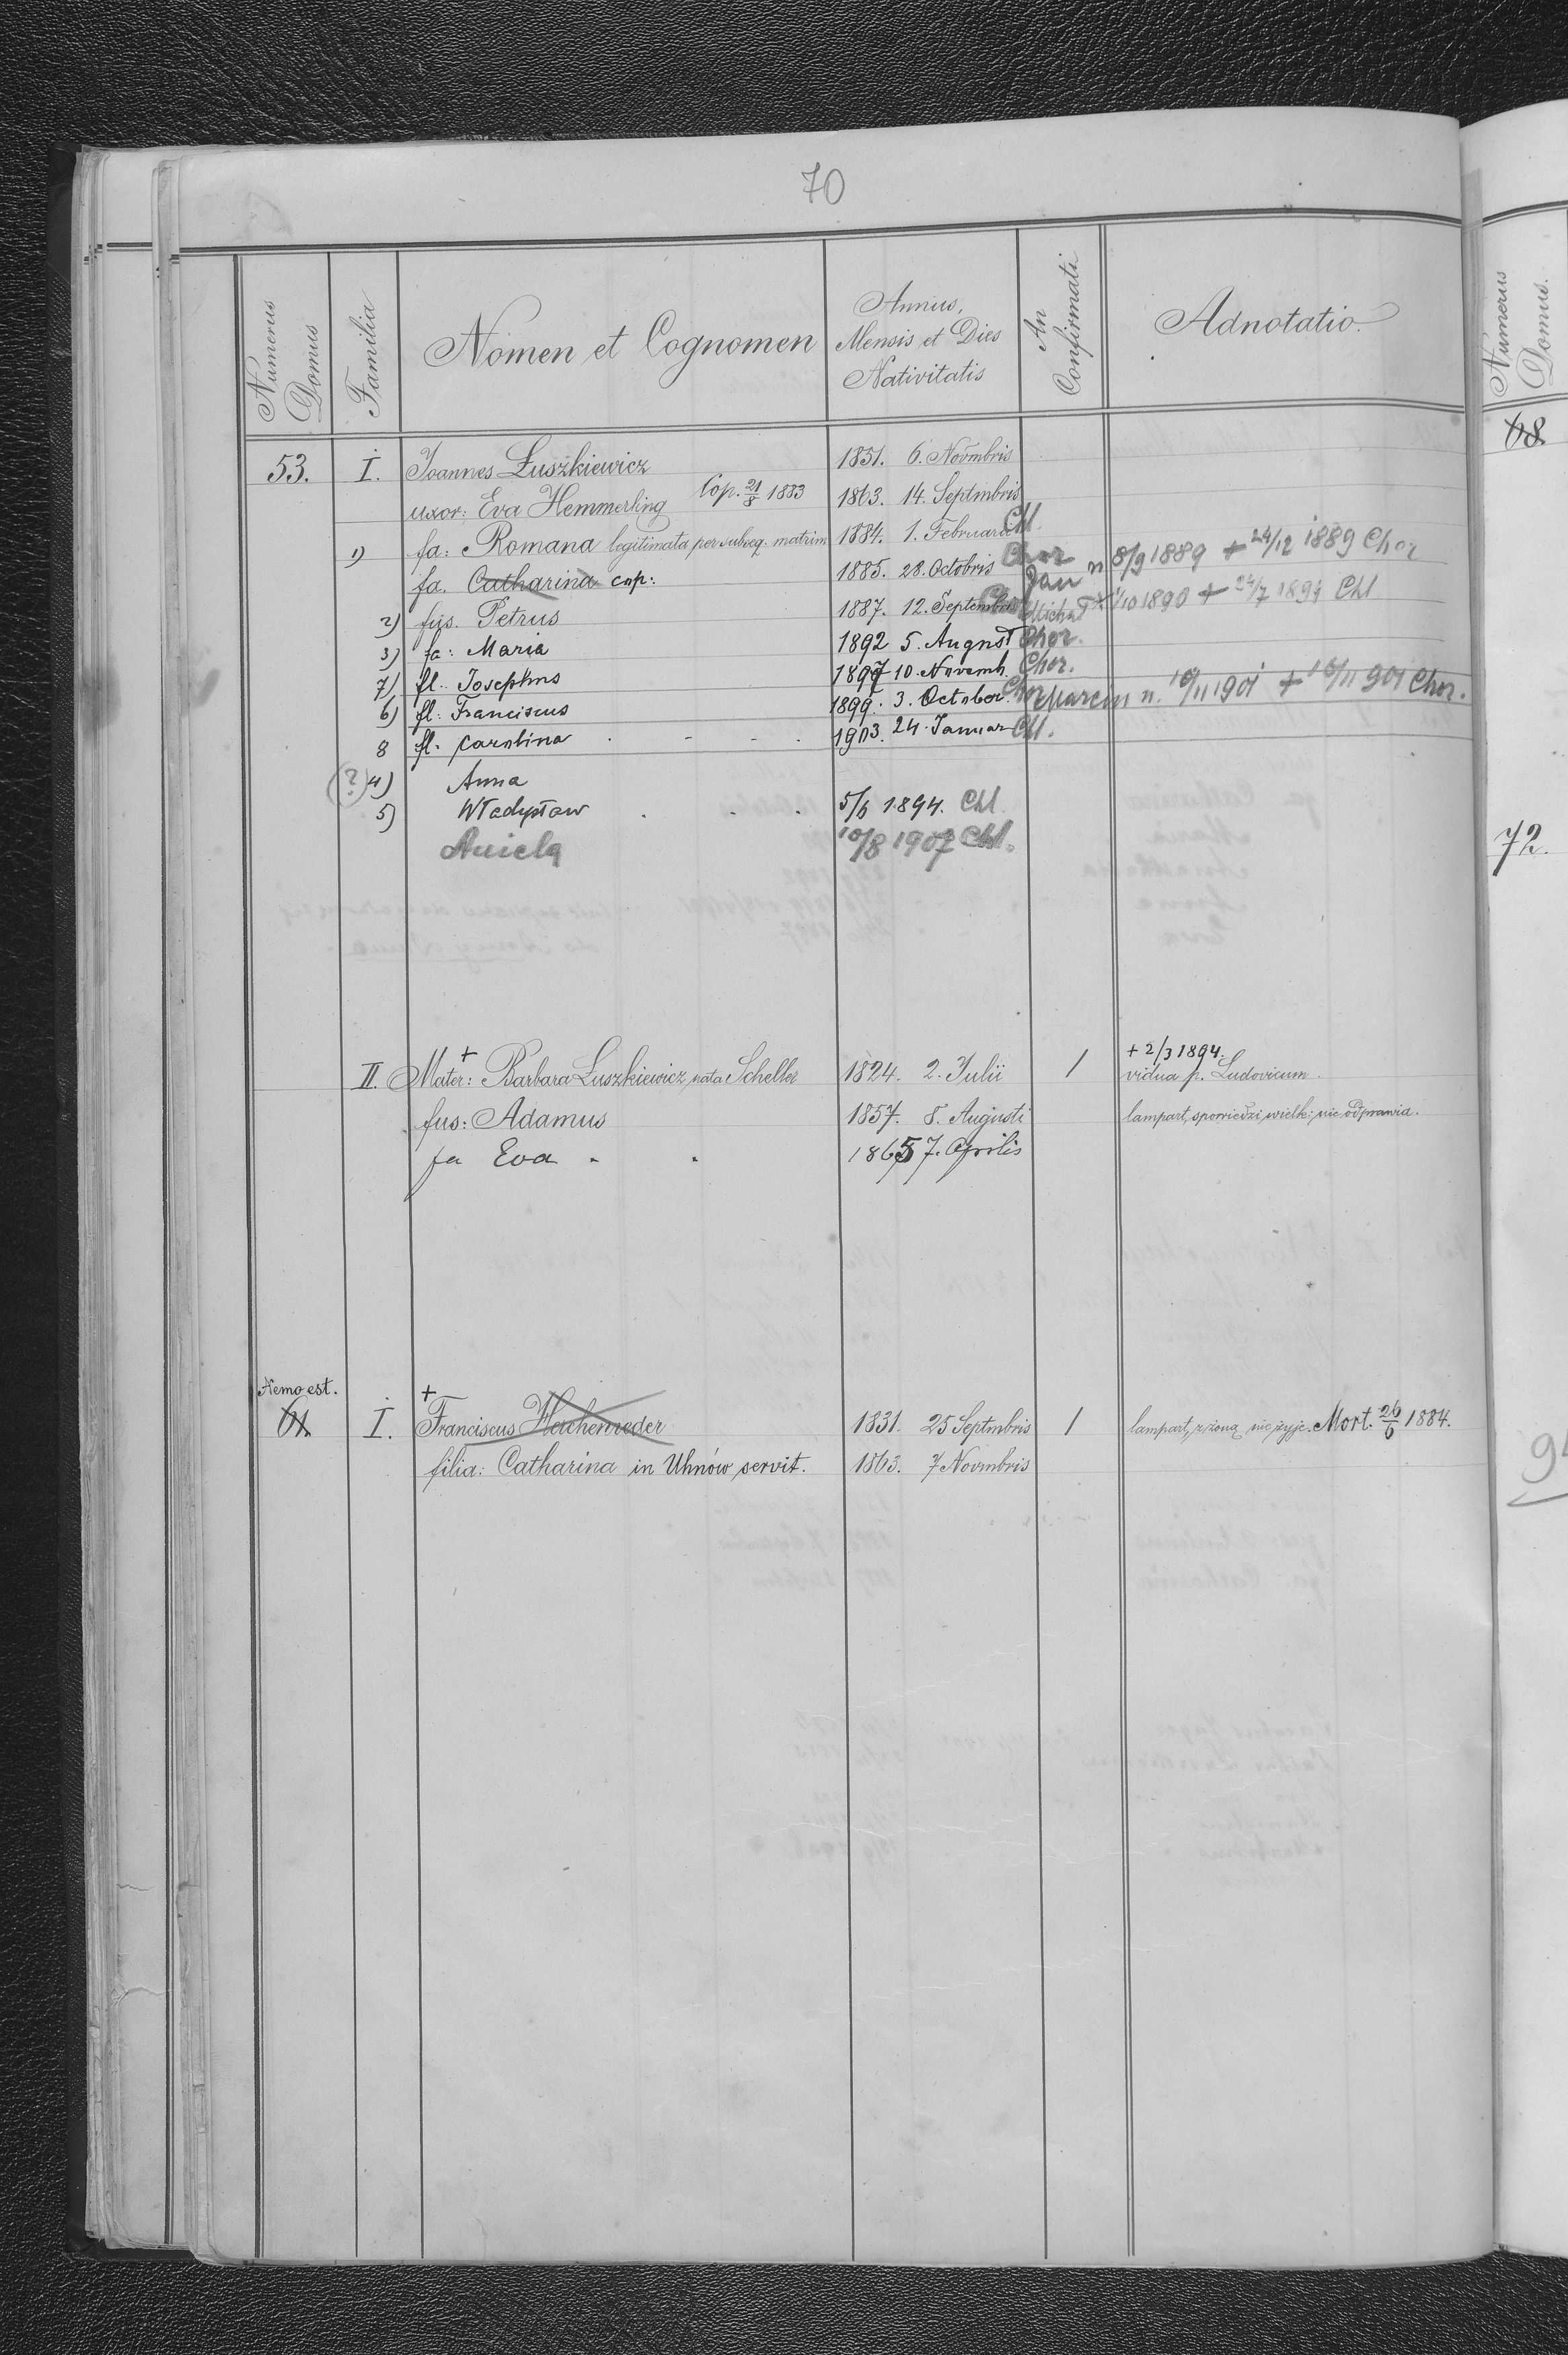 70
Numerus Domus
Familia
Nomen et Cognomen
Annus, Mensis et Dies Nativitatis
An Confirmati
Adnotatio.
53. I. Joannes Łuszkiewicz 1851. 6. Novmbris
uxor: Eva Hemmerling Cop. 21/8 1883 1863. 14. Septmbris
1) fa: Romana legitimata per subseq. matrim 1884. 1. Februarii Chl.
fa. Catharina cop: 1885. 28. Octobris Chor Jan n 8/9 1889 + 24/12 1889 Chor
2) fus. Petrus 1887. 12. Septembr Michał * 1/10 1890 + 24/7 1894 Chl
3) fa: Maria 1892 5. August Chor.
7) fl. Josephus 1897 10. Novemb. Chor.
6) fl: Franciscus 1899. 3. October Chor Marcin n. 10/11 1901 + 10/11 901 Chor.
8 fl. Carolina 1903. 24. Januar Chl.
(?) 4) Anna
5) Władysław 5/6 1894. Chl
Aniela 10/8 1907 Chl.
II. Mater: + Barbara Łuszkiewicz nata Scheller 1824. 2. Julii 1 + 2/3 1894. vidua p. Ludovicum.
fus: Adamus 1857. 8. Augusti lampart, spowiedzi wielk: nie odprawia.
fa Eva 1865 7. Aprilis
Nemo est.
61. I. + Franciscus Hachenreder 1831. 25 Septmbris 1 lampart, z żoną nie żyje. Mort. 26/6 1884.
filia: Catharina in Uhnów servit. 1863. 7 Novmbris
Numerus Domus.
68
72.